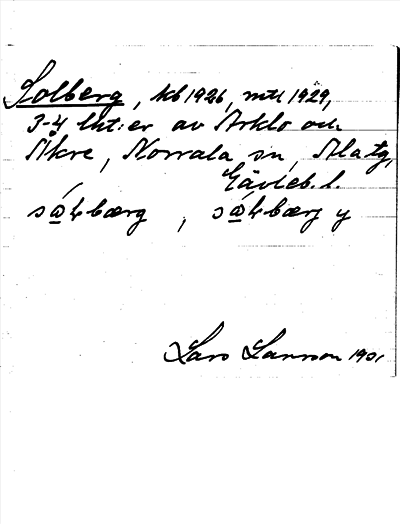 Solberg, kb 1926, mtl 1929,
3-4 lht:er av Arklo och
Åkre, Norrala sn, Ala tg,
Gävleb. l.
sɷ́ɫbærg, sɷ́ɫbærj y
Lars Larsson 1901